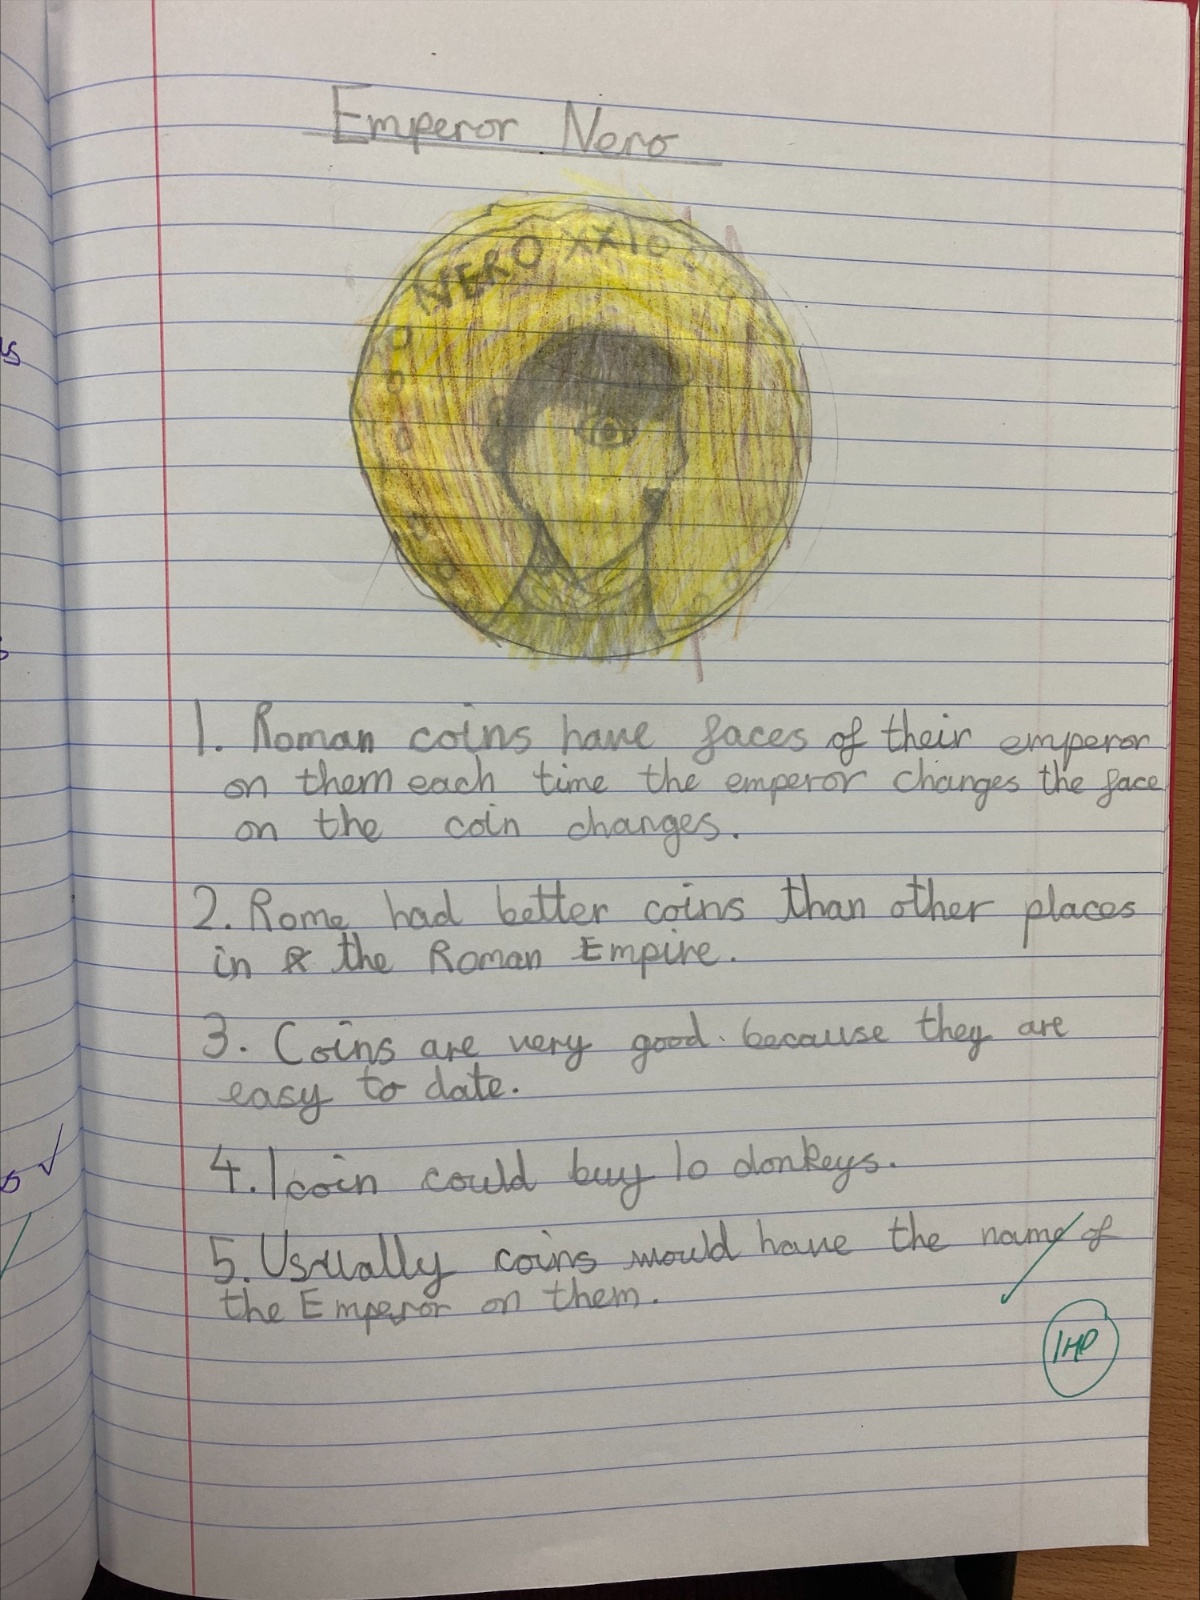 Emperor Nero
NERO XXIO
1. Roman coins have faces of their emperor
on them each time the emperor changes the face
on the coin changes.
2. Rome had better coins than other places
in the Roman Empire.
3. Coins are very good. because they are
easy to date.
4. 1 coin could buy 10 donkeys.
5. Usually coins would have the name of
the Emperor on them.
1HP